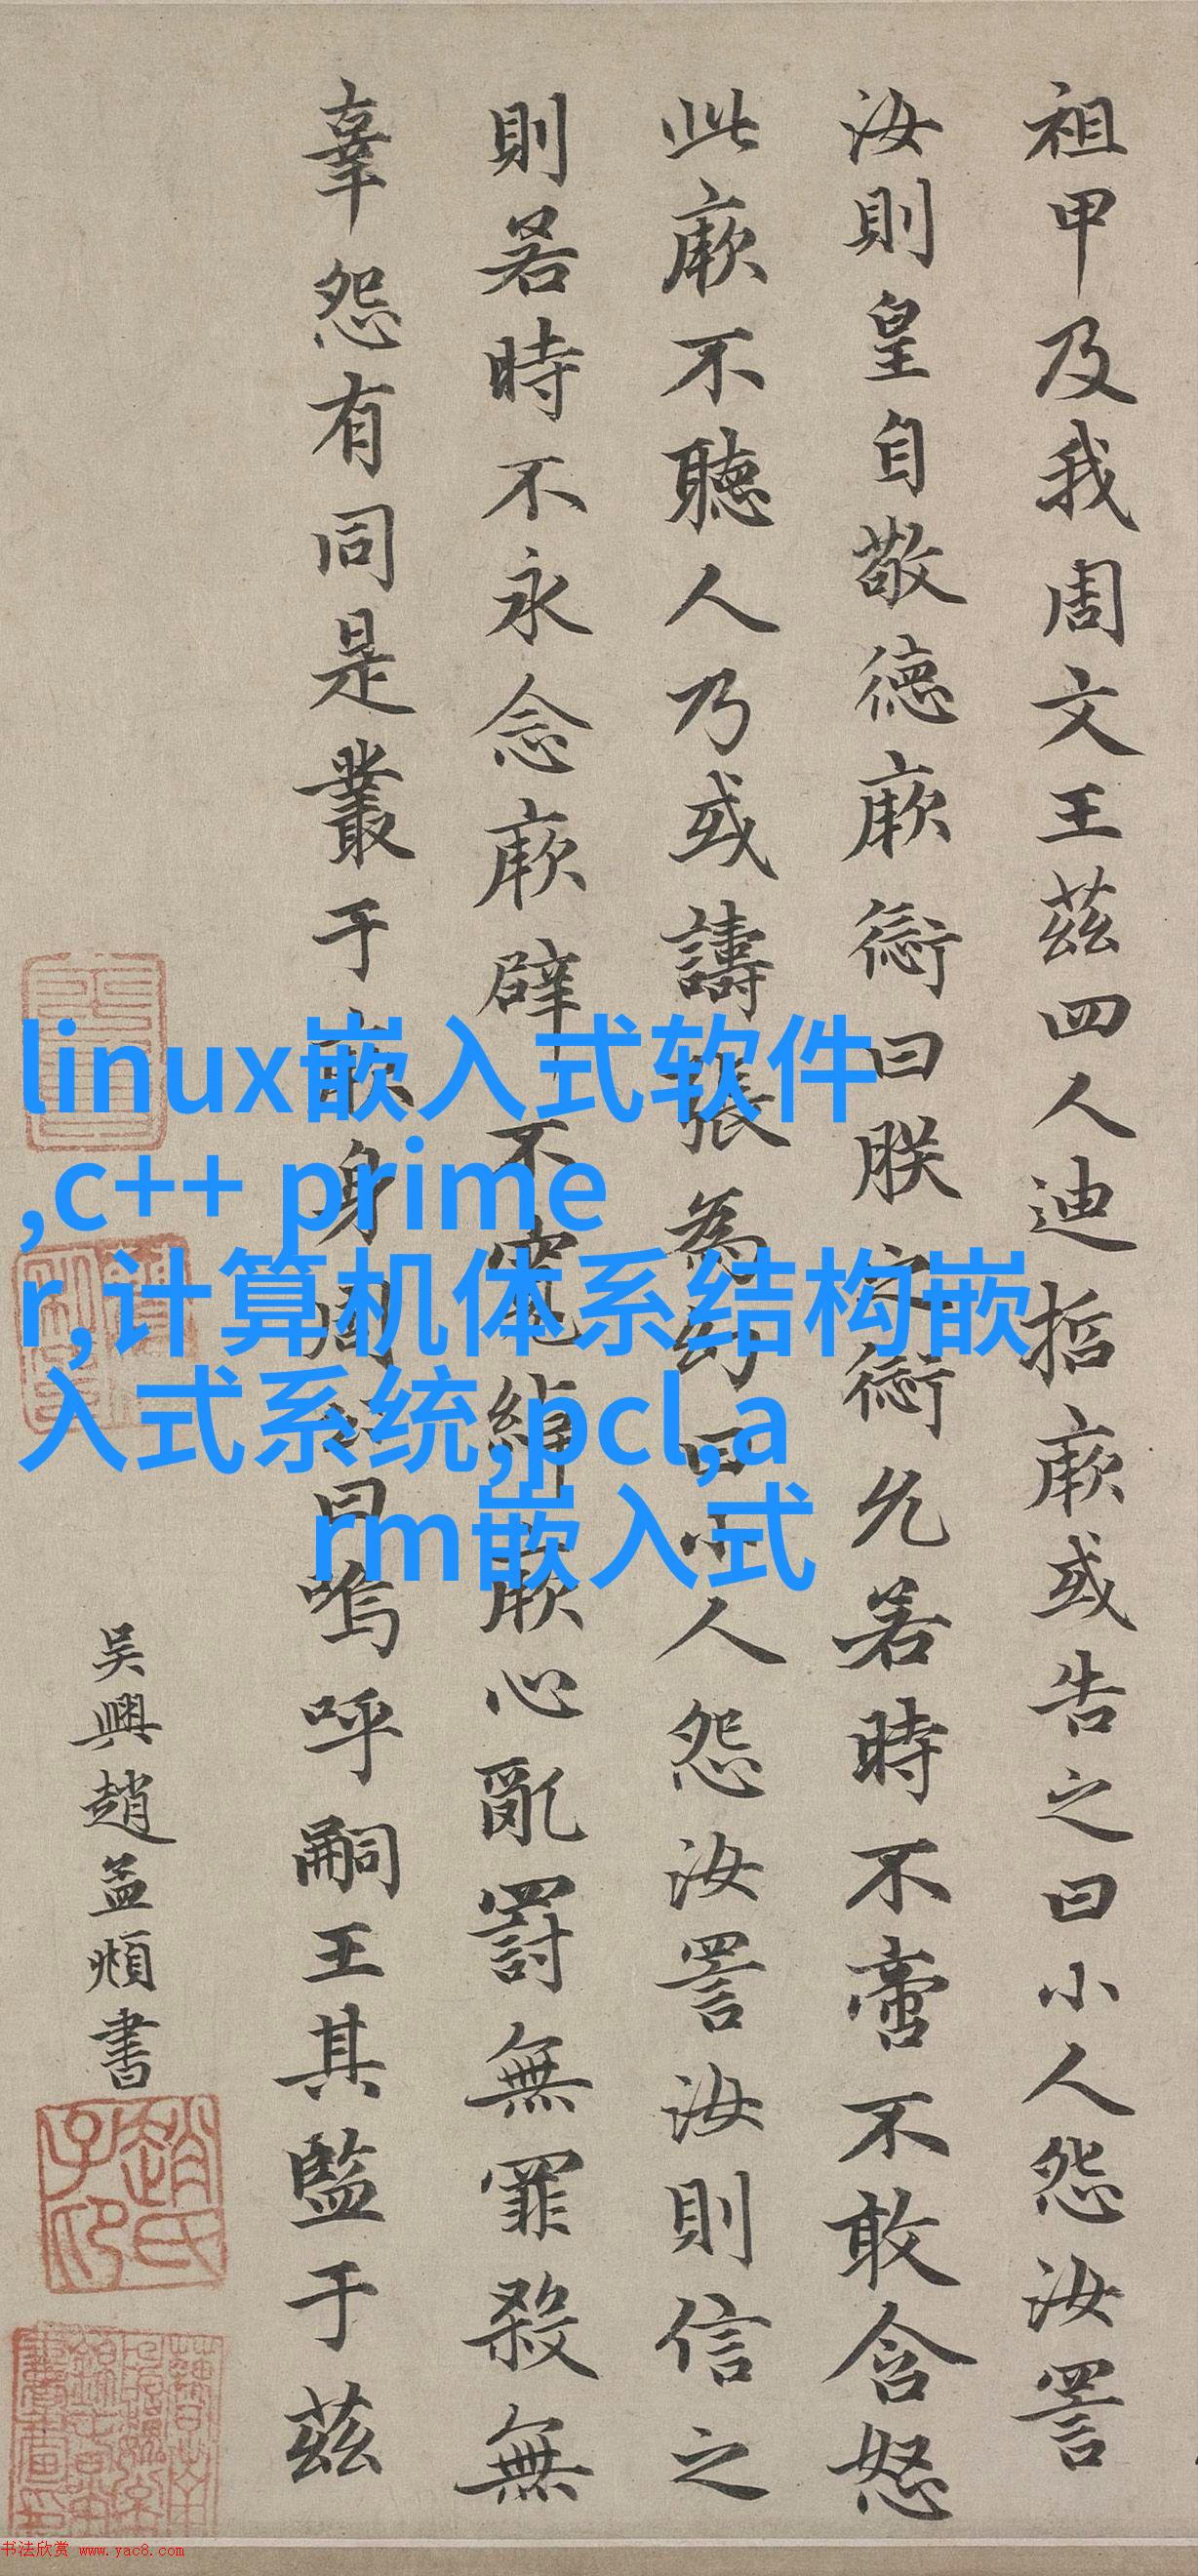 祖甲及我周文王茲四人迪哲厥或告之曰小人怨汝詈
汝則皇自敬德厥愆曰朕之愆允若時不啻不敢含怒
此厥不聽人乃或譸張為幻曰小人怨汝詈汝則信之
則若時不永念厥辟不寬綽厥心亂罰無罪殺無
辜怨有同是叢于厥身周公曰嗚呼嗣王其監于茲
吳興趙孟頫書
趙氏子昂
linux嵌入式软件
,c++ prime
r,计算机体系结构嵌
入式系统,pcl,a
rm嵌入式
书法欣赏 www.yac8.com